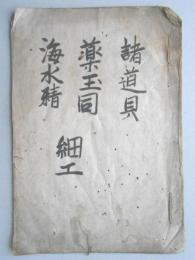 諸道具
薬玉同
海水晴
細工